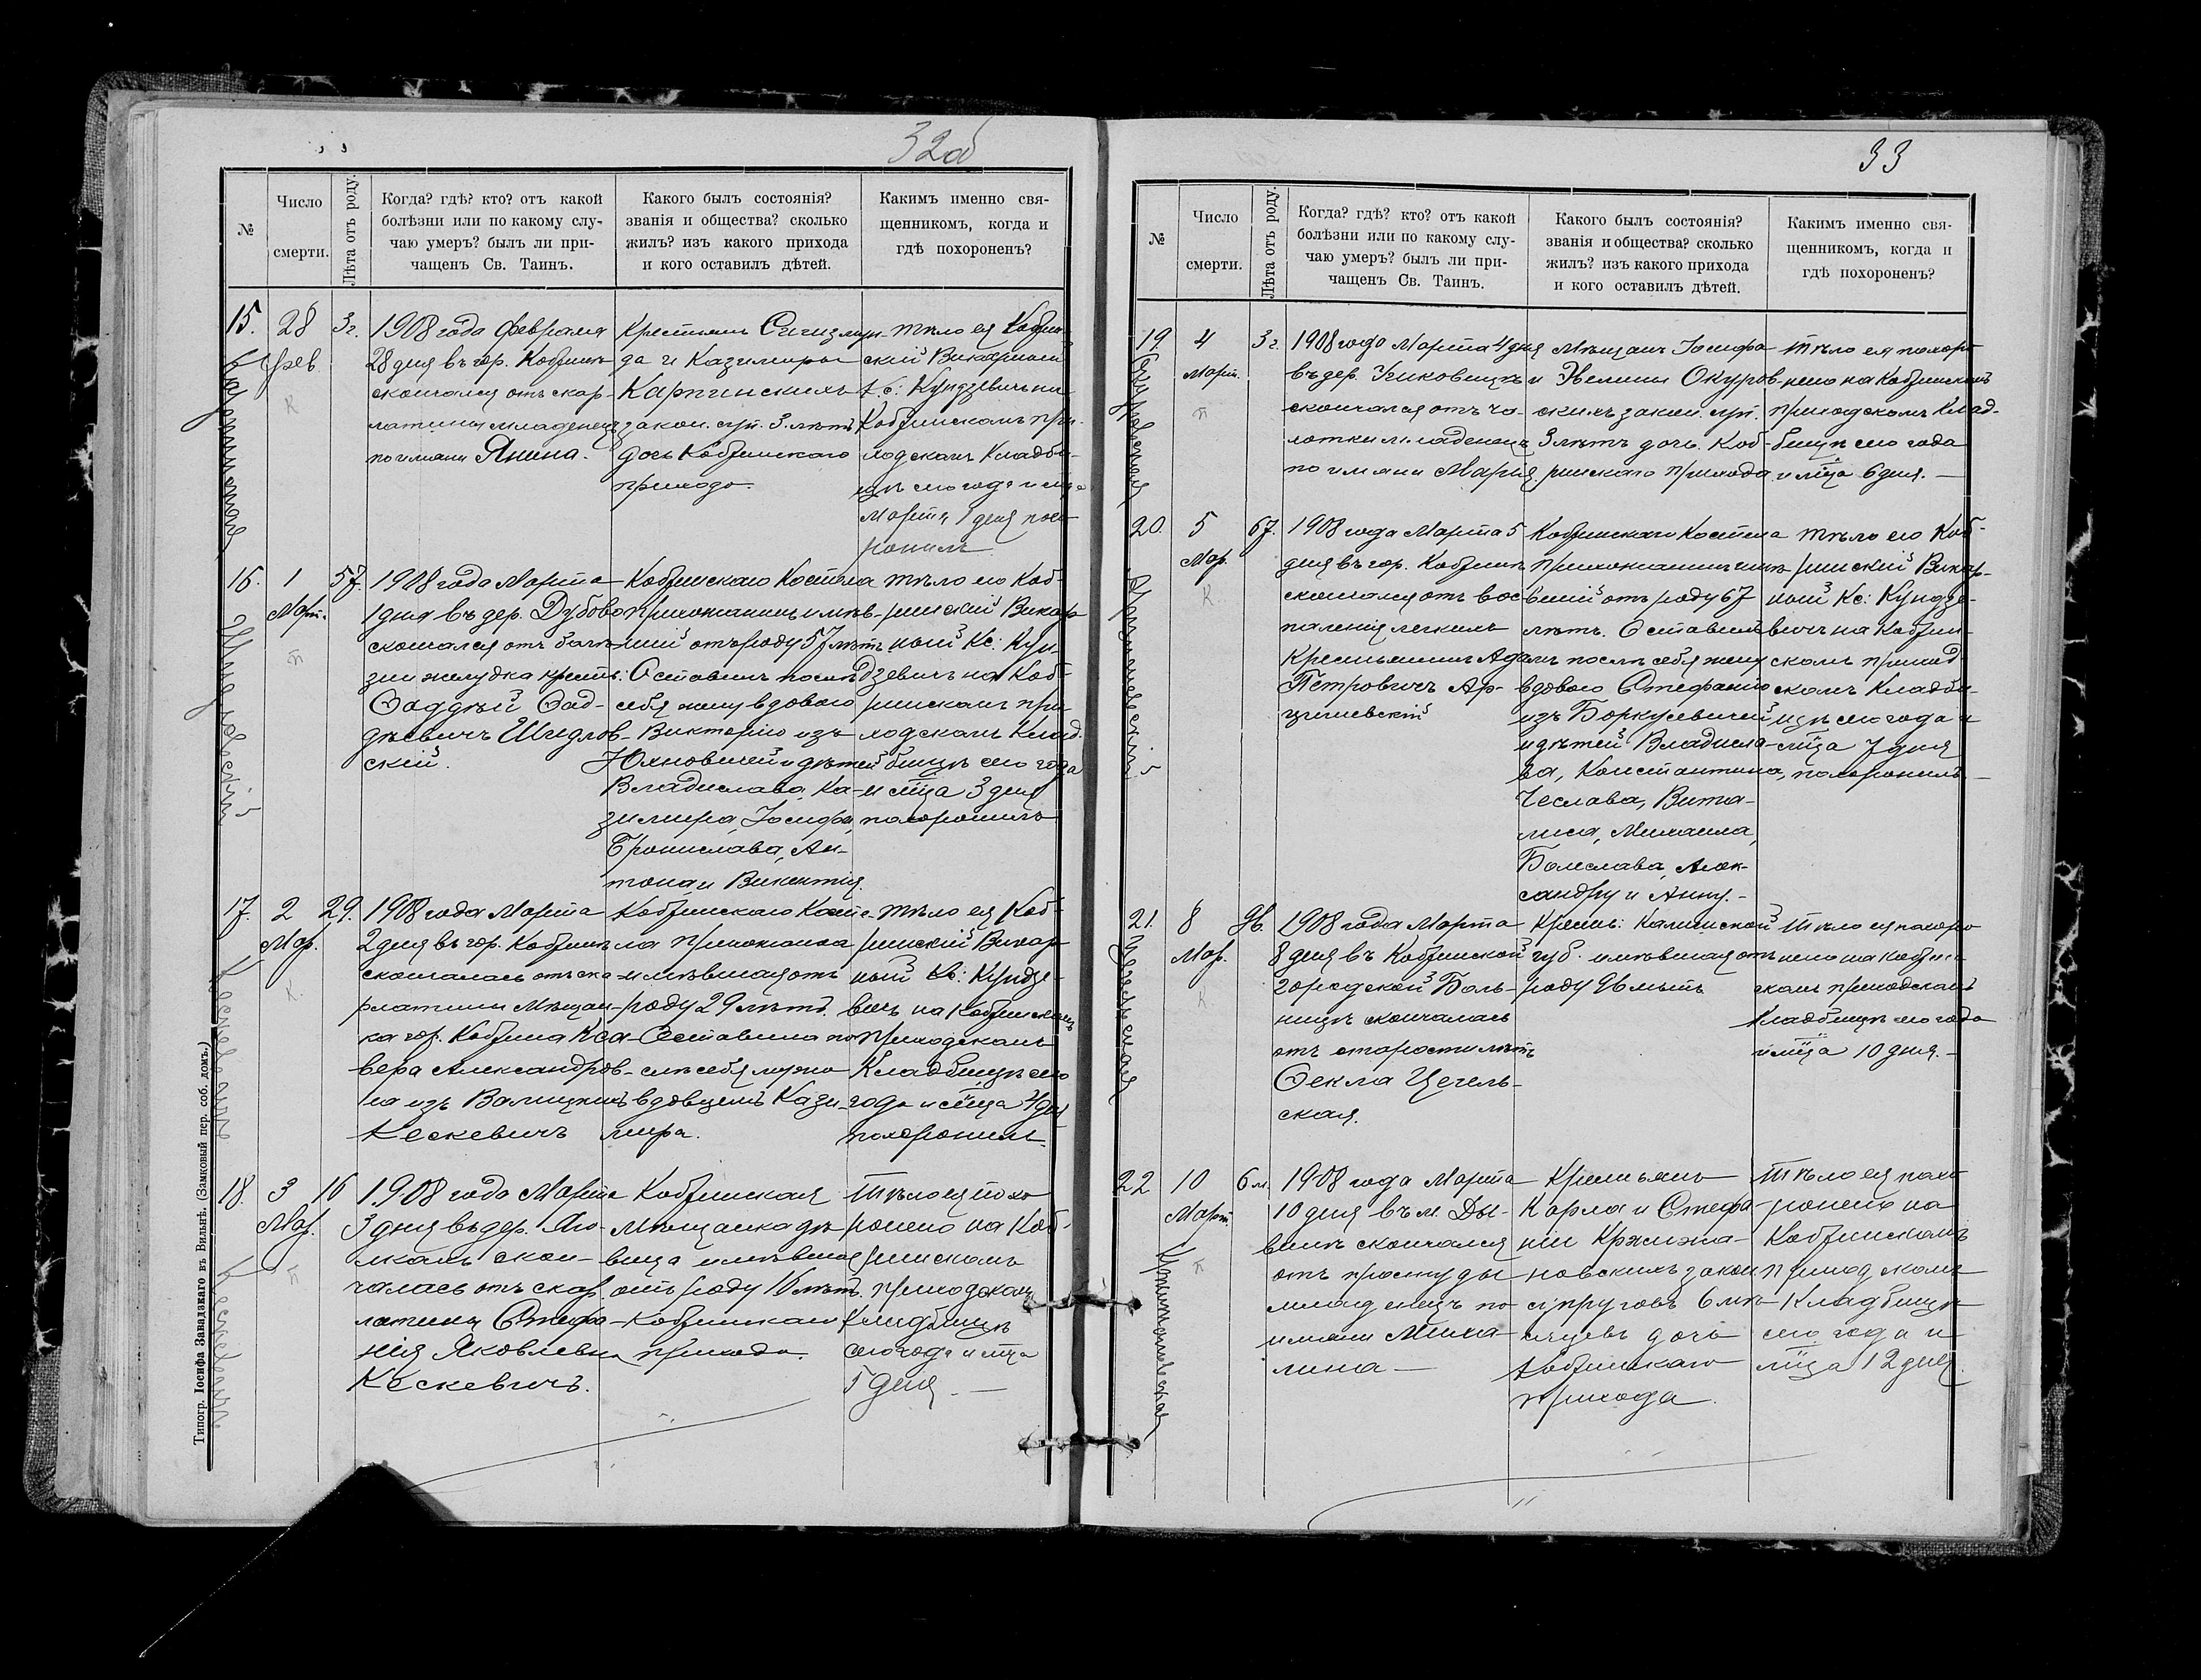 32об
№
Число
смерти.
Лѣта отъ роду.
Когда? гдѣ? кто? отъ какой
болѣзни или по какому слу-
чаю умеръ? былъ ли при-
чащенъ Св. Таинъ.
Какого былъ состоянія?
званія и общества? сколько
жилъ? изъ какого прихода
и кого оставилъ дѣтей.
Какимъ именно свя-
щенникомъ, когда и
гдѣ похороненъ?
15.
28
Фев
3 г.
1908 года Февраля
28 дня въ гор. Кобринѣ
скончался отъ скар-
латины младенецъ
по имяни Янина.
Крестьян Сигизмун-
да и Казимиры
Карпинскихъ
закон. суп. 3. лѣтъ
дочь Кобринскаго
прихода.
Тѣло ея Кобрин-
скій Викарный
Кс: Кундзевичъ на
Кобринскомъ при-
ходскомъ Кладби-
щѣ сего года и м-ца
Марта 1 дня похо-
ронилъ
16.
1
Март.
57.
1908 года Марта
1 дня въ дер. Дубово
скончался отъ болѣ-
зни желудка крест:
Ѳаддей Ѳад-
дѣевичъ Шидлов-
скій.
Кобринскаго Костела
прихожанинъ имѣв-
шій отъ роду 57 лѣтъ.
Оставилъ послѣ
себя жену вдовою
Викторію изъ
Юхновичей и дѣтей
Владислава, Ка-
зимира, Іосифа,
Бронислава, Ан-
тона и Викентія.
Тѣло его Коб-
ринскій Викар
ный Кс: Кун-
дзевичъ на Коб-
ринскомъ при-
ходскомъ Клад-
бищѣ сего года
и м-ца 3 дня
похоронилъ
Шидловскій
17.
2
Мар.
29.
1908 года Марта
2 дня въ гор. Кобринѣ
скончалась отъ ска-
рлатины Мѣщан-
ка гор. Кобрина Кса-
вера Александров-
на изъ Валицкихъ
Кескевичъ
Кобринскаго Косте-
ла прихожанка
имѣвшая отъ
роду 29 лѣтъ.
Оставила по-
слѣ себя мужа
вдовцемъ Кази-
мира.
Тѣло ея Коб-
ринскій Викар
ный Кс: Кундзе-
вичъ на Кобринскомъ
Приходскомъ
Кладбищѣ сего
года и м-ца 4 дня
похоронилъ
18.
3
Мар.
16
1908 года Марта
3 дня въ дер.
скон-
чалась отъ скар-
латины Стефа-
нія Яковлевна
Кескевичъ.
Кобринская
Мѣщанка дѣ-
вица имѣвшая
отъ роду 16 лѣтъ.
Кобринскаго
прихода.
Тѣло ея похо
ронено на Коб-
ринскомъ
приходскомъ
Кладбищѣ
сего года и м-ца
5 дня. —
Типогр. Іосифа Завадзкаго въ Вильнѣ. (Замковый пер. соб. домъ.)
33
№
Число
смерти.
Лѣта отъ роду.
Когда? гдѣ? кто? отъ какой
болѣзни или по какому слу-
чаю умеръ? былъ ли при-
чащенъ Св. Таинъ.
Какого былъ состоянія?
званія и общества? сколько
жилъ? изъ какого прихода
и кого оставилъ дѣтей.
Какимъ именно свя-
щенникомъ, когда и
гдѣ похороненъ?
19
4
Март.
3 г.
1908 года Марта 4 дня
въ дер.
скончался отъ ча-
хотки младенецъ
по имяни Марія.
Мѣщанъ Іосифа
и Эвелины Окуров-
скихъ закон. суп.
3 лѣтъ дочь. Коб-
ринскаго прихода
Тѣло ея похоро
нено на Кобринскомъ
приходскомъ Клад-
бищѣ сего года
и м-ца 6 дня. —
20.
5
Мар.
67.
1908 года Марта 5
дня въ гор. Кобринѣ
скончался отъ вос-
паленія легкихъ
Крестьянинъ Адамъ
Петровичъ Ар-
цишевскій
Кобринскаго Костела
прихожанинъ имѣ-
вшій отъ роду 67
лѣтъ. Оставилъ
послѣ себя жену
вдовою Стефанію
изъ Боркусевичей
и дѣтей Владисла-
ва, Константина,
Чеслава, Вита-
лиса, Михаила,
Болеслава, Алек-
сандру и Анну. —
Тѣло его Коб-
ринскій Викар-
ный Кс: Кундзе-
вичъ на Кобрин-
скомъ приход
скомъ Кладби-
щѣ сего года и
м-ца 7 дня
похоронилъ —
Арцишевскій
21.
8
Мар.
96.
1908 года Марта
8 дня въ Кобринской
городской Боль-
ницѣ скончалась
отъ старости лѣтъ
Ѳекла Цегель-
ская.
Крест:
губ. имѣвшая отъ
роду 96 лѣтъ
Тѣло ея похоро
нено на Кобрин-
скомъ приходскомъ
Кладбищѣ сего года
и м-ца 10 дня. —
Цегельская
22
10
Март.
6 м.
1908 года Марта
10 дня въ м. Ды-
винѣ скончался
отъ простуды
младенецъ по
имяни Миха-
лина —
Крестьянъ
Карла и Стефа-
ніи Кржижа-
новскихъ закон
супруговъ 6 мѣ-
сяцевъ дочь
Кобринскаго
прихода.
Тѣло ея похо
ронено на
Кобринскомъ
приходскомъ
Кладбищѣ
сего года и
м-ца 12 дня.